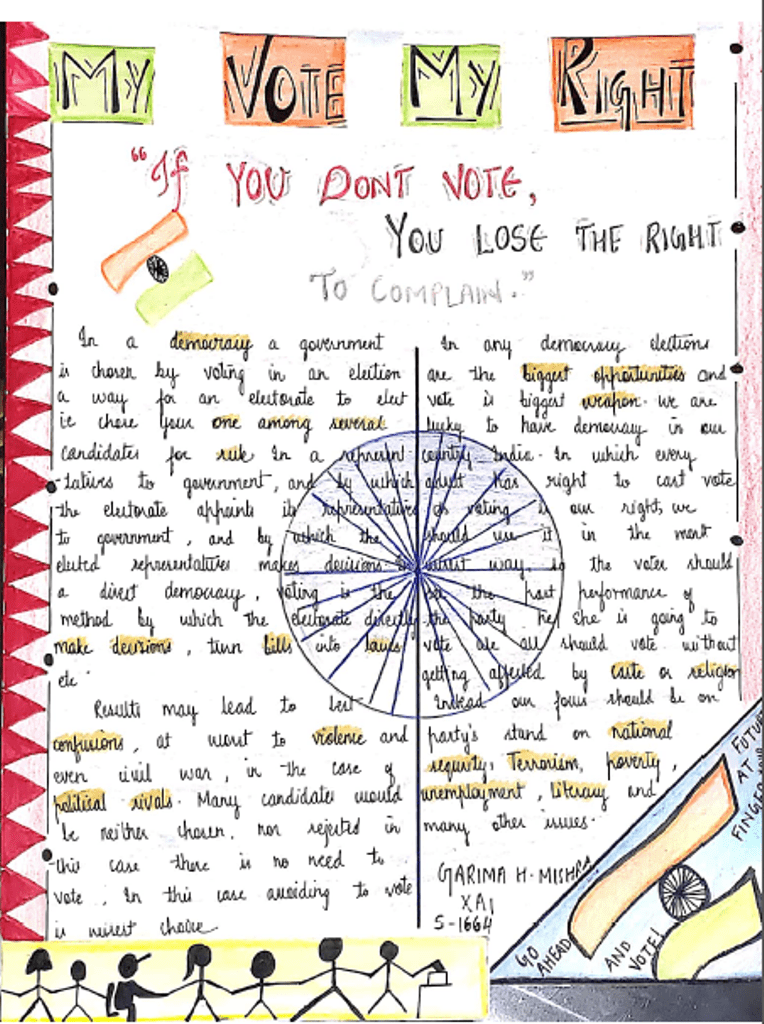 MY VOTE MY RIGHT
"If YOU DONT VOTE,
YOU LOSE THE RIGHT
TO COMPLAIN."
In a democracy a government
is chosen by voting in an election
a way for an electorate to elect
ie chose your one among several
candidates for rule In a represent
-tatives to government, and by which
the electorate appoints its representatives
to government, and by which the
elected representatives makes decisions In
a direct democracy, voting is the
method by which the electorate directly
make decisions, turn bills into laws
etc.
Results may lead to best
confusions, at worst to violence and
even civil war, in the case of
political rivals. Many candidates would
be neither chosen, nor rejected in
this case there is no need to
vote. In this case avoiding to vote
is wisest choice
In any democracy elections
are the biggest opportunities and
vote is biggest weapon. we are
lucky to have democracy in our
country India. In which every
adult has right to cast vote
As voting is our right, we
should use it in the most
wisest way, so the voter should
see the past performance of
the party he/she is going to
vote are all should vote without
getting affected by caste or religion
Instead our focus should be on
party's stand on national
sequrity, Terrorism, poverty,
unemployment, literacy and
many other issues.
GARIMA H. MISHRA
XA1
S-1664
FUTURE
AT YOUR
FINGER
GO AHEAD
AND VOTE!